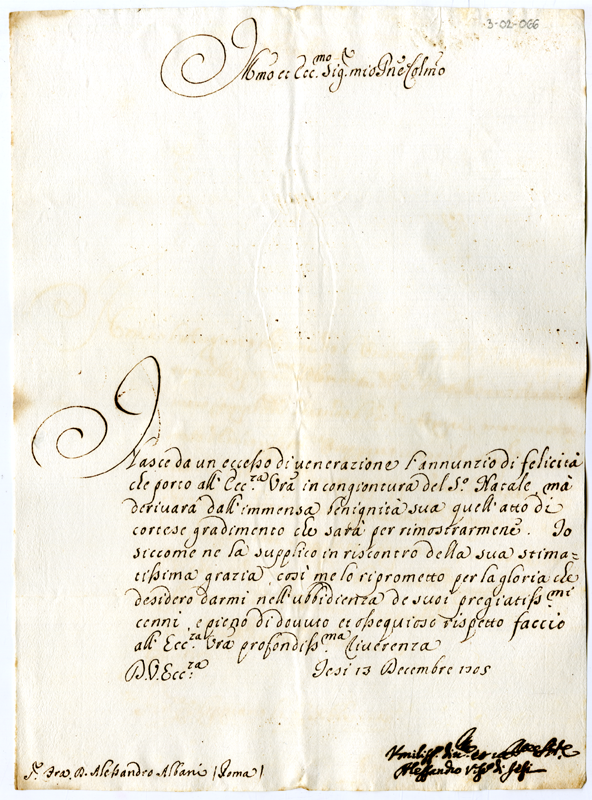 3-02-066
Illmo et Ecc.mo Sig.r mio Pne Colmo
Nasce da un eccesso di venerazione l'annunzio di felicità
che porto all' Ecc.ra Vrã in congiontura del S.o Natale, mà
derivarà dall' immensa benignità sua quell' atto di
cortese gradimento che sarà per rimostrarmene. Io
siccome ne la supplico in riscontro della sua stima=
tissima grazia, così me lo riprometto per la gloria che
desidero darmi nell' ubbidienza de suoi pregiatiss.mi
cenni, e pieno di dovuto et ossequioso rispetto faccio
all' Ecc.ra Vrã profondiss.ma Riverenza
D.V. Ecc.ra Jesi 13 Decembre 1705
Umiliss.o
Alessandro Vesc.o di Jesi
S.r D. Alessandro Albani (Roma)